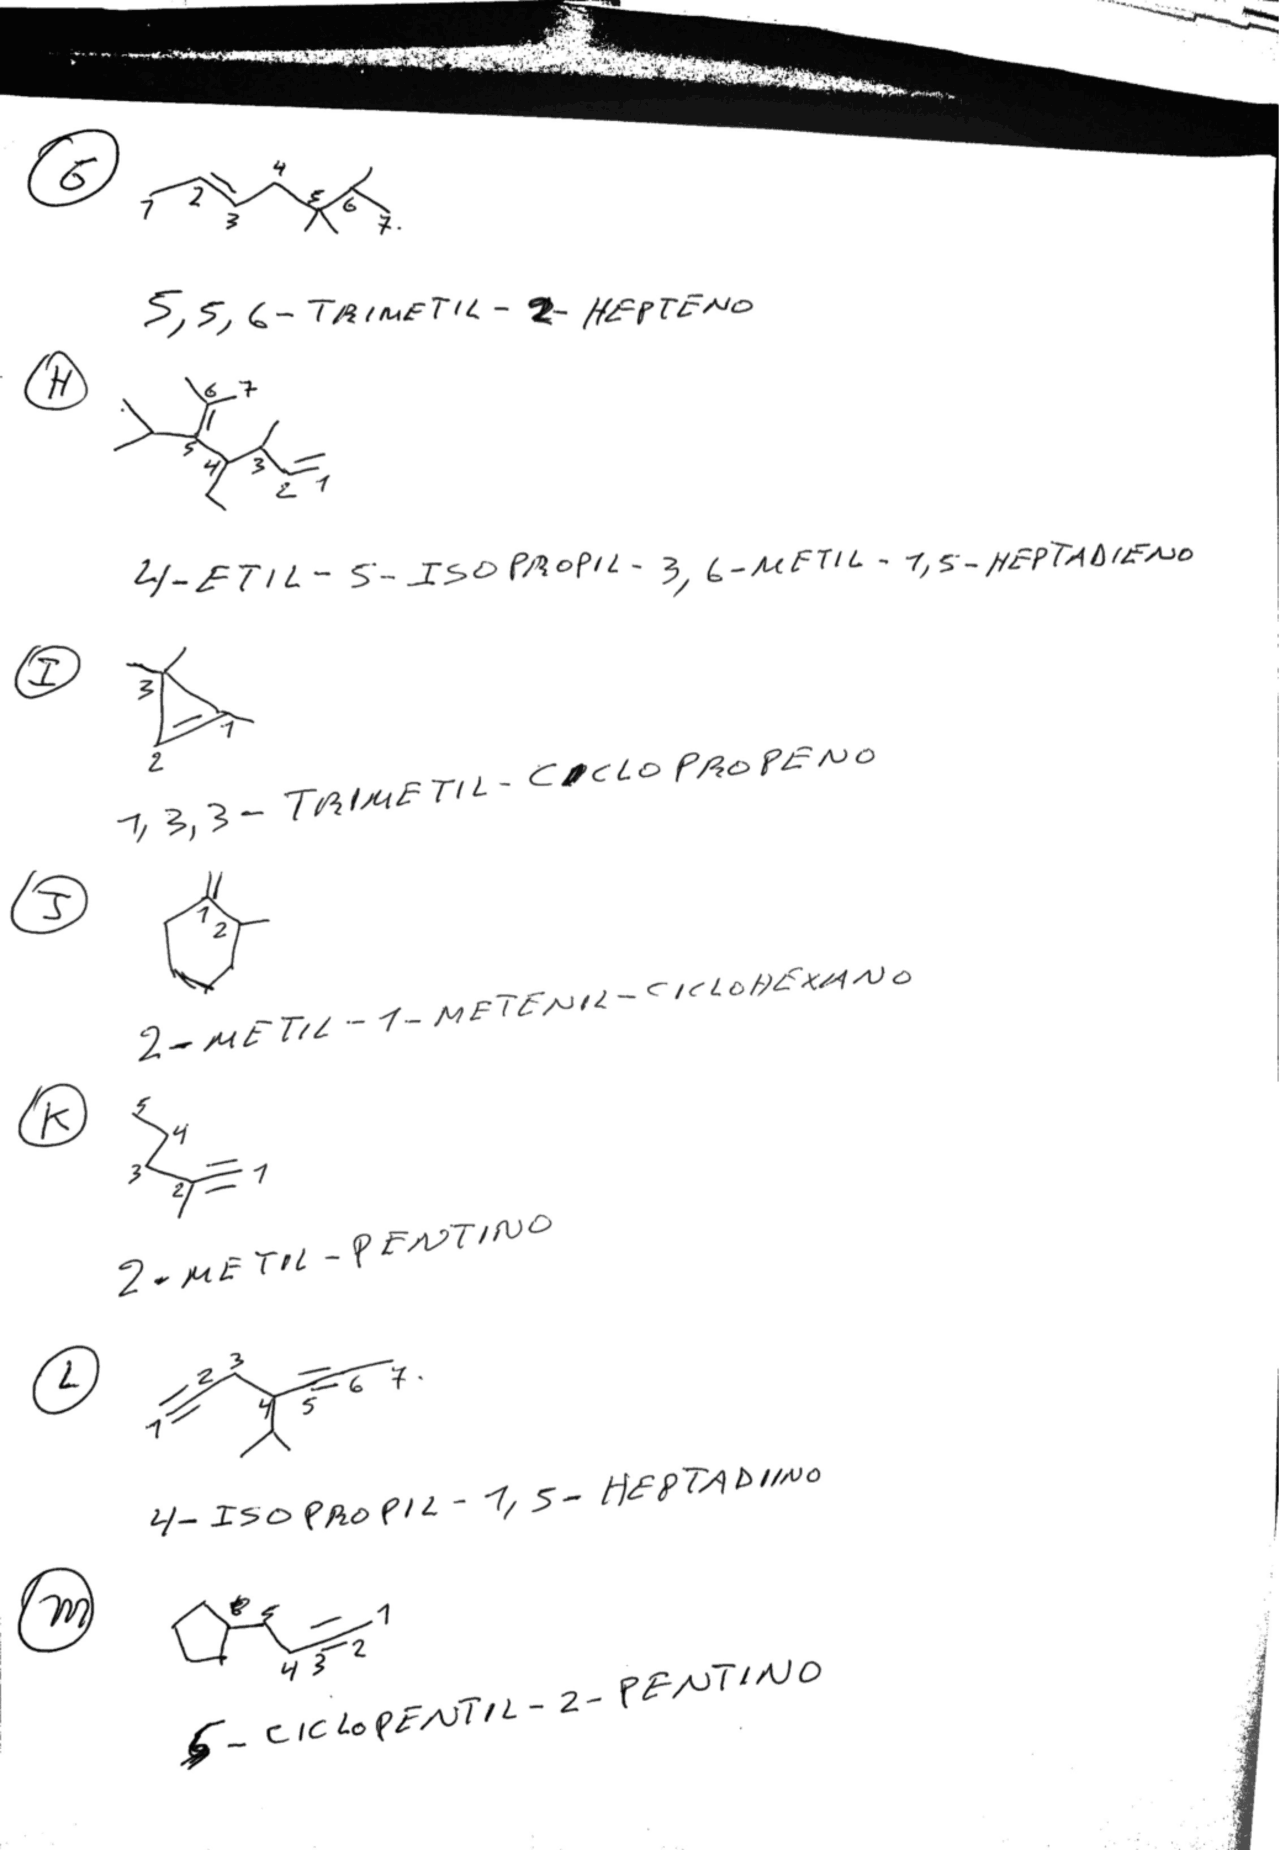 G
1 2 3 4 5 6 7.
5,5,6-TRIMETIL-2-HEPTENO
H
6 7
5 4 3 2 1
4-ETIL-5-ISOPROPIL-3,6-METIL-1,5-HEPTADIENO
I
3
1
2
1,3,3-TRIMETIL-CICLOPROPENO
J
1
2
2-METIL-1-METENIL-CICLOHEXANO
K
5
4
3 2 1
2-METIL-PENTINO
L
1 2 3 4 5 6 7.
4-ISOPROPIL-1,5-HEPTADIINO
M
5 4 3 2 1
5-CICLOPENTIL-2-PENTINO